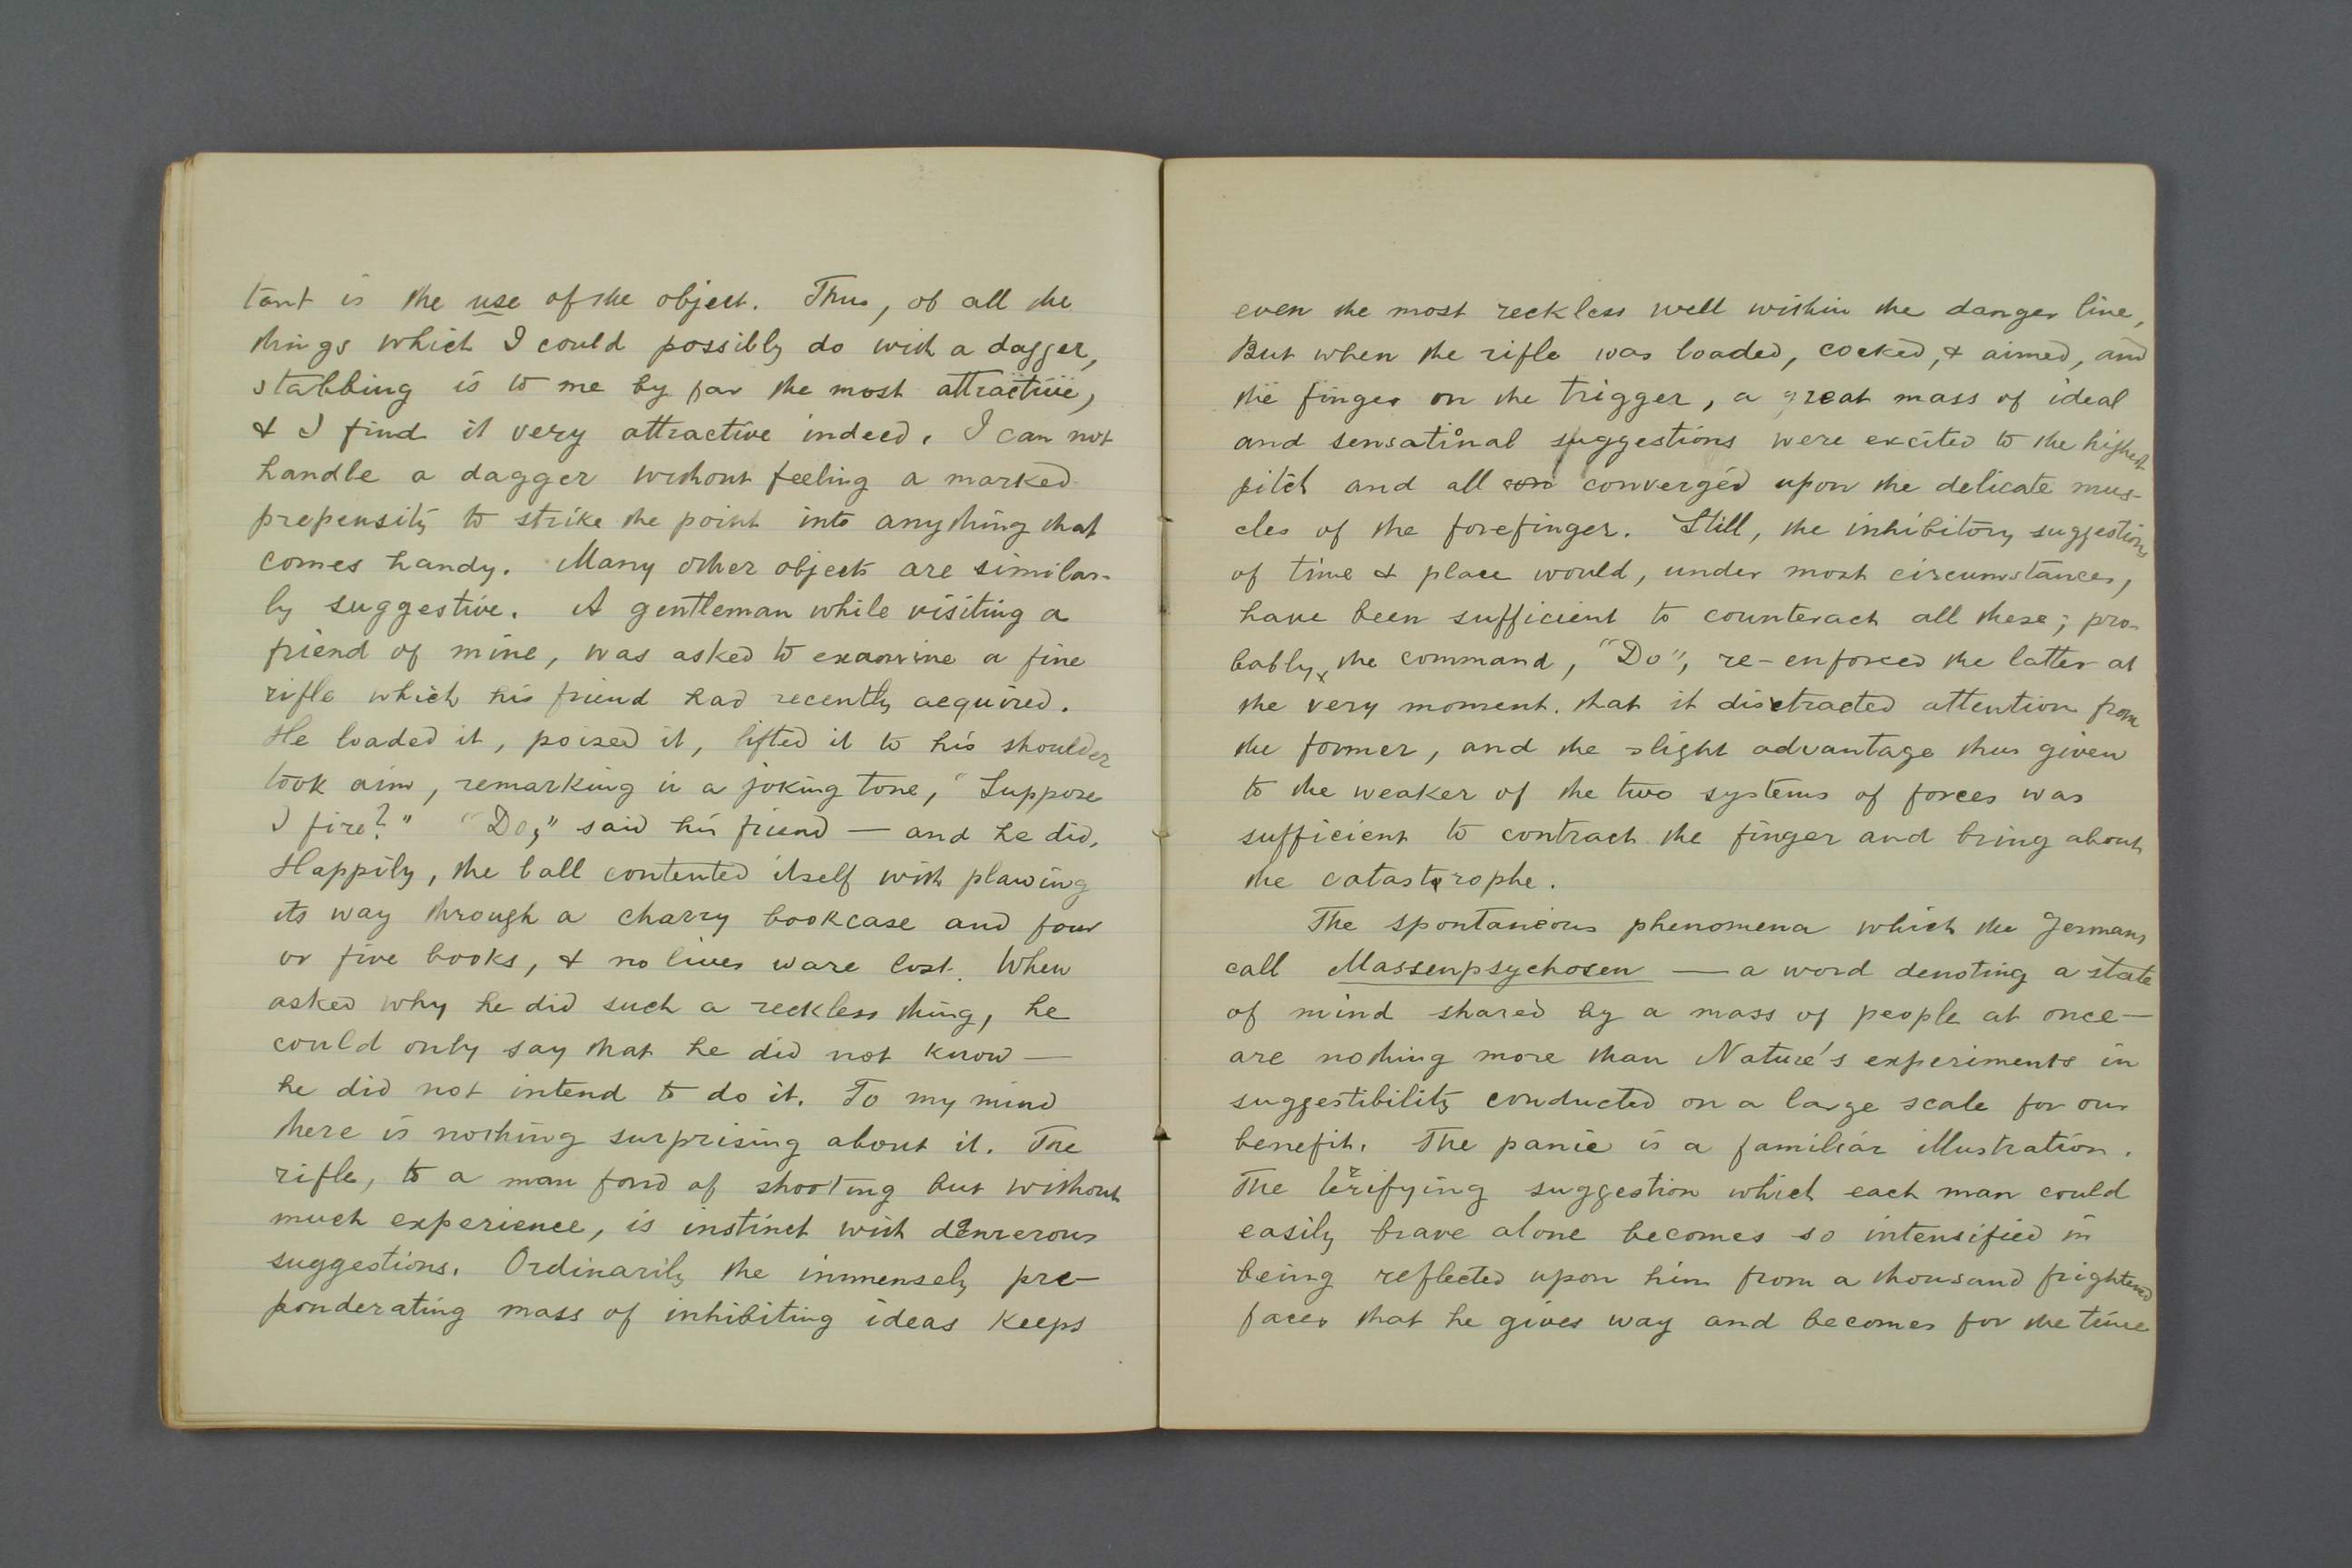 tant is the use of the object. Thus, of all the
things which I could possibly do with a dagger,
stabbing is to me by far the most attractive,
& I find it very attractive indeed. I can not
handle a dagger without feeling a marked
prepensity to strike the point into anything that
comes handy. Many other objects are similar-
ly suggestive. A gentleman while visiting a
friend of mine, was asked to examine a fine
rifle which his friend had recently acquired.
He loaded it, poised it, lifted it to his shoulder
took aim, remarking in a joking tone, "Suppose
I fire?" "Do," said his friend — and he did.
Happily, the ball contented itself with plawing
its way through a charry bookcase and four
or five books, & no lives ware lost. When
asked why he did such a reckless thing, he
could only say that he did not know —
he did not intend to do it. To my mind
there is nothing surprising about it. The
rifle, to a man fond of shooting but without
much experience, is instinct with
suggestions. Ordinarily the immensely pre-
ponderating mass of inhibiting ideas keeps
even the most reckless well within the danger line,
But when the rifle was loaded, cocked, & aimed, and
the finger on the trigger, a great mass of ideal
and sensational suggestions were excited to the highest
pitch and all converged upon the delicate mus-
cles of the forefinger. Still, the inhibitory suggestions
of time & place would, under most circumstances,
have been sufficient to counteract all these; pro-
bably, the command, "Do", re-enforced the latter at
the very moment. that it distracted attention from
the former, and the slight advantage thus given
to the weaker of the two systems of forces was
sufficient to contract the finger and bring about
the catastrophe.
The spontaneous phenomena which the Germans
call Massenpsychosen — a word denoting a state
of mind shared by a mass of people at once —
are nothing more than Nature's experiments in
suggestibility conducted on a large scale for our
benefit. The panic is a familiar illustration.
The terrifying suggestion which each man could
easily brave alone becomes so intensified in
being reflected upon him from a thousand frightened
faces that he gives way and becomes for the time